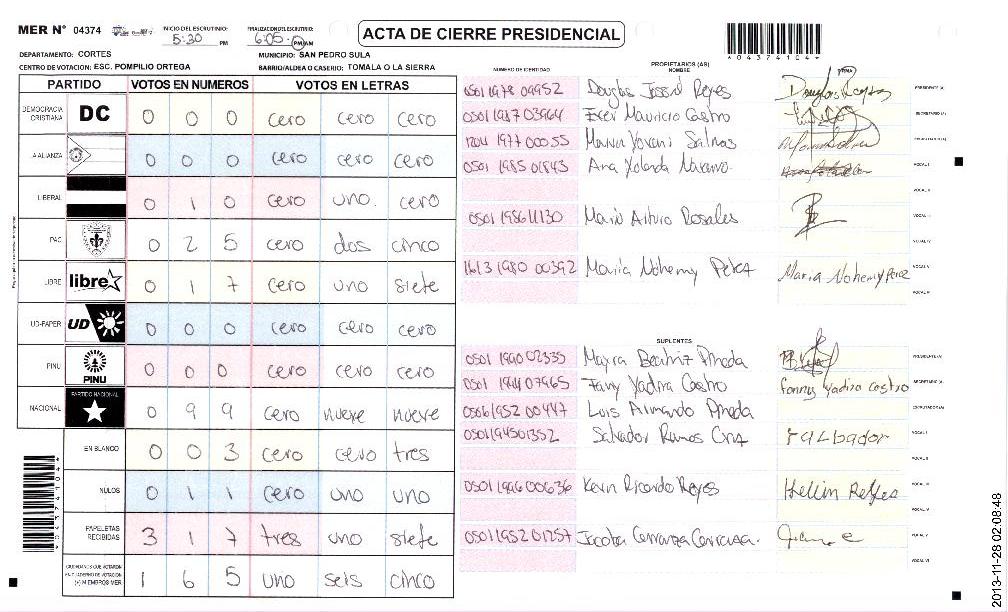 MER N° 04374
INICIO DEL ESCRUTINIO: 5:30 PM
FINALIZACION DEL ESCRUTINIO: 6:05 PM/AM
ACTA DE CIERRE PRESIDENCIAL
04374104
DEPARTAMENTO: CORTES
MUNICIPIO: SAN PEDRO SULA
CENTRO DE VOTACION: ESC. POMPILIO ORTEGA
BARRIO/ALDEA O CASERIO: TOMALA O LA SIERRA
PARTIDO VOTOS EN NUMEROS VOTOS EN LETRAS
DEMOCRACIA CRISTIANA DC 0 0 0 cero cero cero
LA ALIANZA 0 0 0 cero cero cero
LIBERAL 0 1 0 cero uno. cero
PAC 0 2 5 cero dos cinco
LIBRE libre 0 1 7 cero uno siete
UD-FAPER UD 0 0 0 cero cero cero
PINU PINU 0 0 0 cero cero cero
NACIONAL PARTIDO NACIONAL 0 9 9 cero nueve nueve
EN BLANCO 0 0 3 cero cero tres
NULOS 0 1 1 cero uno uno
PAPELETAS RECIBIDAS 3 1 7 tres uno siete
CIUDADANOS QUE VOTARON EN CUADERNO DE VOTACION (+) MIEMBROS MER 1 6 5 uno seis cinco
04374104
NUMERO DE IDENTIDAD
PROPIETARIOS (AS)
NOMBRE
FIRMA
0501 1978 09952 Douglas Reyes PRESIDENTE (A)
0501 1987 03964 Mauricio Castro SECRETARIO (A)
1204 1977 00055 Salinas ESCRUTADOR (A)
0501 1985 01843 Ana Yolanda VOCAL I
VOCAL II
0501 1986 11130 Mario Arturo Rosales VOCAL III
VOCAL IV
1613 1980 00392 Maria Nohemy Perez Maria Nohemy Perez VOCAL V
VOCAL VI
SUPLENTES
0501 1990 02335 Mayra Beatriz Pineda PRESIDENTE (A)
0501 1944 07965 Fany Yadira Castro Fanny Yadira Castro SECRETARIO (A)
0506 1952 00447 Luis Armando Pineda ESCRUTADOR (A)
0501 1945 01352 Salvador Ramos Cruz Salbador VOCAL I
VOCAL II
0501 1996 00636 Kevin Ricardo Reyes VOCAL III
VOCAL IV
0501 1952 01257 Jacoba Carranza VOCAL V
VOCAL VI
2013-11-28 02:08:48